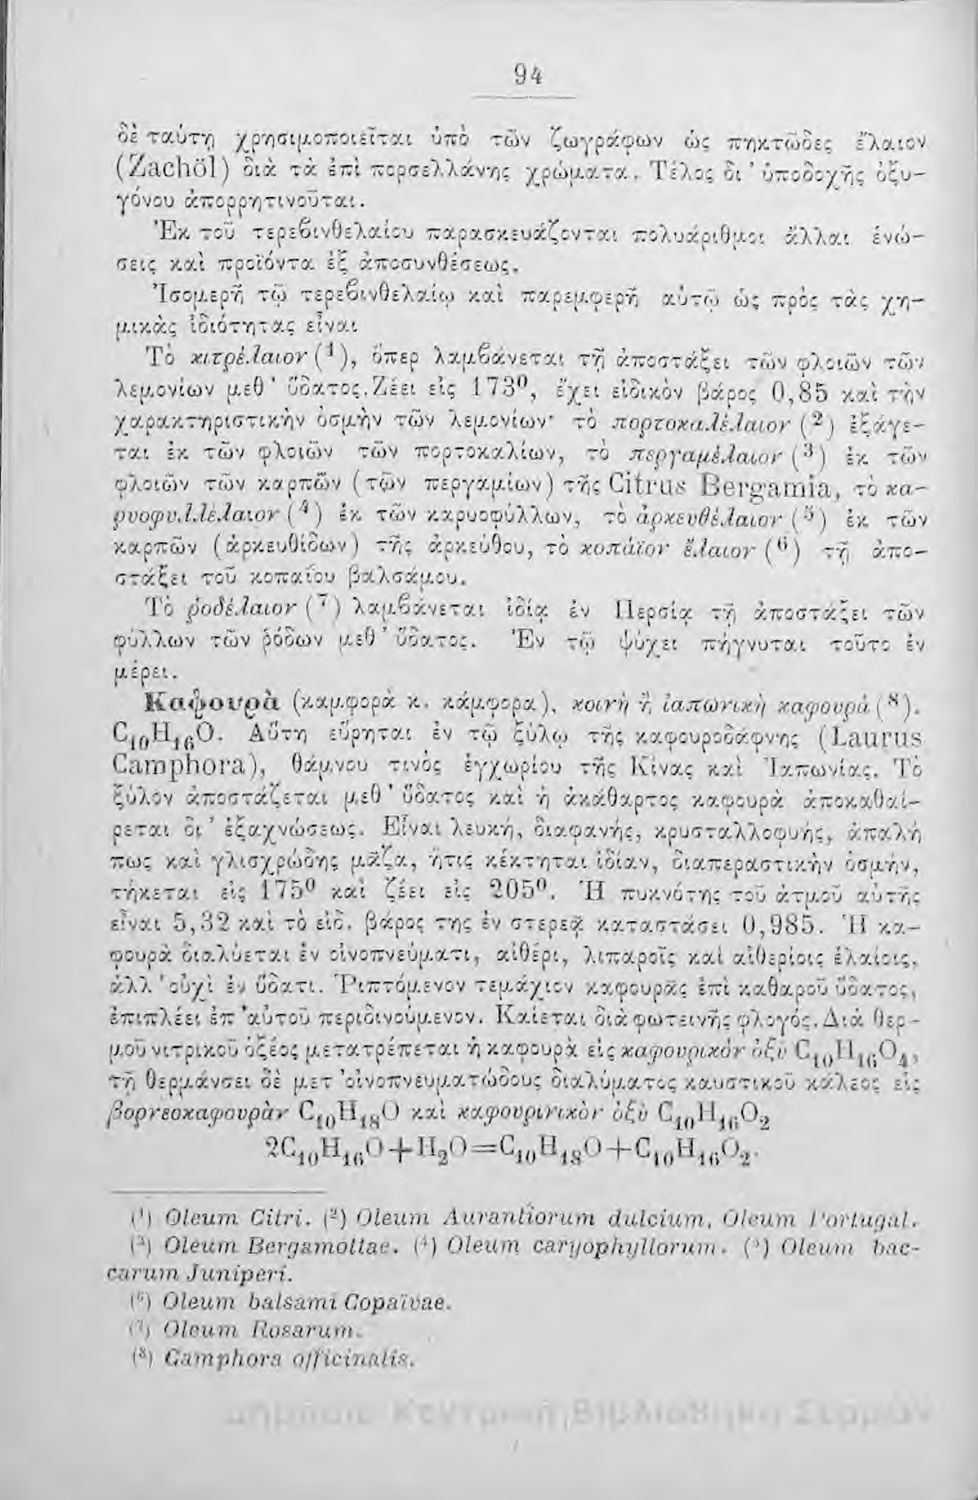 94
δὲ ταύτη χρησιμοποιεῖται ὑπὸ τῶν ζωγράφων ὡς πηκτῶδες ἔλαιον
(Zachöl) διὰ τὰ ἐπὶ πορσελλάνης χρώματα. Τέλος δι' ὑποδοχῆς ὀξυ-
γόνου ἀπορρητινοῦται.
Ἐκ τοῦ τερεβινθελαίου παρασκευάζονται πολυάριθμοι ἄλλαι ἑνώ-
σεις καὶ προϊόντα ἐξ ἀποσυνθέσεως.
Ἰσομερῆ τῷ τερεβινθελαίῳ καὶ παρεμφερῆ αὐτῷ ὡς πρὸς τὰς χη-
μικὰς ἰδιότητας εἶναι
Τὸ κιτρέλαιον (¹), ὅπερ λαμβάνεται τῇ ἀποστάξει τῶν φλοιῶν τῶν
λεμονίων μεθ' ὕδατος. Ζέει εἰς 173⁰, ἔχει εἰδικὸν βάρος 0,85 καὶ τὴν
χαρακτηριστικὴν ὀσμὴν τῶν λεμονίων· τὸ πορτοκαλέλαιον (²) ἐξάγε-
ται ἐκ τῶν φλοιῶν τῶν πορτοκαλίων, τὸ περγαμέλαιον (³) ἐκ τῶν
φλοιῶν τῶν καρπῶν (τῶν περγαμίων) τῆς Citrus Bergamia, τὸ κα-
ρυοφυλλέλαιον (⁴) ἐκ τῶν καρυοφύλλων, τὸ ἀρκευθέλαιον (⁵) ἐκ τῶν
καρπῶν (ἀρκευθίδων) τῆς ἀρκεύθου, τὸ κοπάϊον ἔλαιον (⁶) τῇ ἀπο-
στάξει τοῦ κοπαΐου βαλσάμου.
Τὸ ῥοδέλαιον (⁷) λαμβάνεται ἰδίᾳ ἐν Περσίᾳ τῇ ἀποστάξει τῶν
φύλλων τῶν ῥόδων μεθ' ὕδατος. Ἐν τῷ ψύχει πήγνυται τοῦτο ἐν
μέρει.
Καφουρὰ (καμφορὰ κ. κάμφορα), κοινὴ ἢ ἰαπωνικὴ καφουρά (⁸).
C₁₀H₁₆O. Αὕτη εὕρηται ἐν τῷ ξύλῳ τῆς καφουροδάφνης (Laurus
Camphora), θάμνου τινὸς ἐγχωρίου τῆς Κίνας καὶ Ἰαπωνίας. Τὸ
ξύλον ἀποστάζεται μεθ' ὕδατος καὶ ἡ ἀκάθαρτος καφουρὰ ἀποκαθαί-
ρεται δι' ἐξαχνώσεως. Εἶναι λευκή, διαφανής, κρυσταλλοφυής, ἁπαλή
πως καὶ γλισχρώδης μᾶζα, ἥτις κέκτηται ἰδίαν, διαπεραστικὴν ὀσμήν,
τήκεται εἰς 175⁰ καὶ ζέει εἰς 205⁰. Ἡ πυκνότης τοῦ ἀτμοῦ αὐτῆς
εἶναι 5,32 καὶ τὸ εἰδ. βάρος της ἐν στερεᾷ καταστάσει 0,985. Ἡ κα-
φουρὰ διαλύεται ἐν οἰνοπνεύματι, αἰθέρι, λιπαροῖς καὶ αἰθερίοις ἐλαίοις,
ἀλλ' οὐχὶ ἐν ὕδατι. Ῥιπτόμενον τεμάχιον καφουρᾶς ἐπὶ καθαροῦ ὕδατος,
ἐπιπλέει ἐπ' αὐτοῦ περιδινούμενον. Καίεται διὰ φωτεινῆς φλογός. Διὰ θερ-
μοῦ νιτρικοῦ ὀξέος μετατρέπεται ἡ καφουρὰ εἰς καφουρικὸν ὀξὺ C₁₀H₁₆O₄,
τῇ θερμάνσει δὲ μετ' οἰνοπνευματώδους διαλύματος καυστικοῦ κάλεος εἰς
βορνεοκαφουρὰν C₁₀H₁₈O καὶ καφουρινικὸν ὀξὺ C₁₀H₁₆O₂
2C₁₀H₁₆O+H₂O=C₁₀H₁₈O+C₁₀H₁₆O₂.
(¹) Oleum Citri. (²) Oleum Aurantiorum dulcium, Oleum Portugal.
(³) Oleum Bergamottae. (⁴) Oleum caryophyllorum. (⁵) Oleum bac-
carum Juniperi.
(⁶) Oleum balsami Copaïvae.
(⁷) Oleum Rosarum.
(⁸) Camphora officinalis.
Δημόσια Κεντρική Βιβλιοθήκη Σερρών